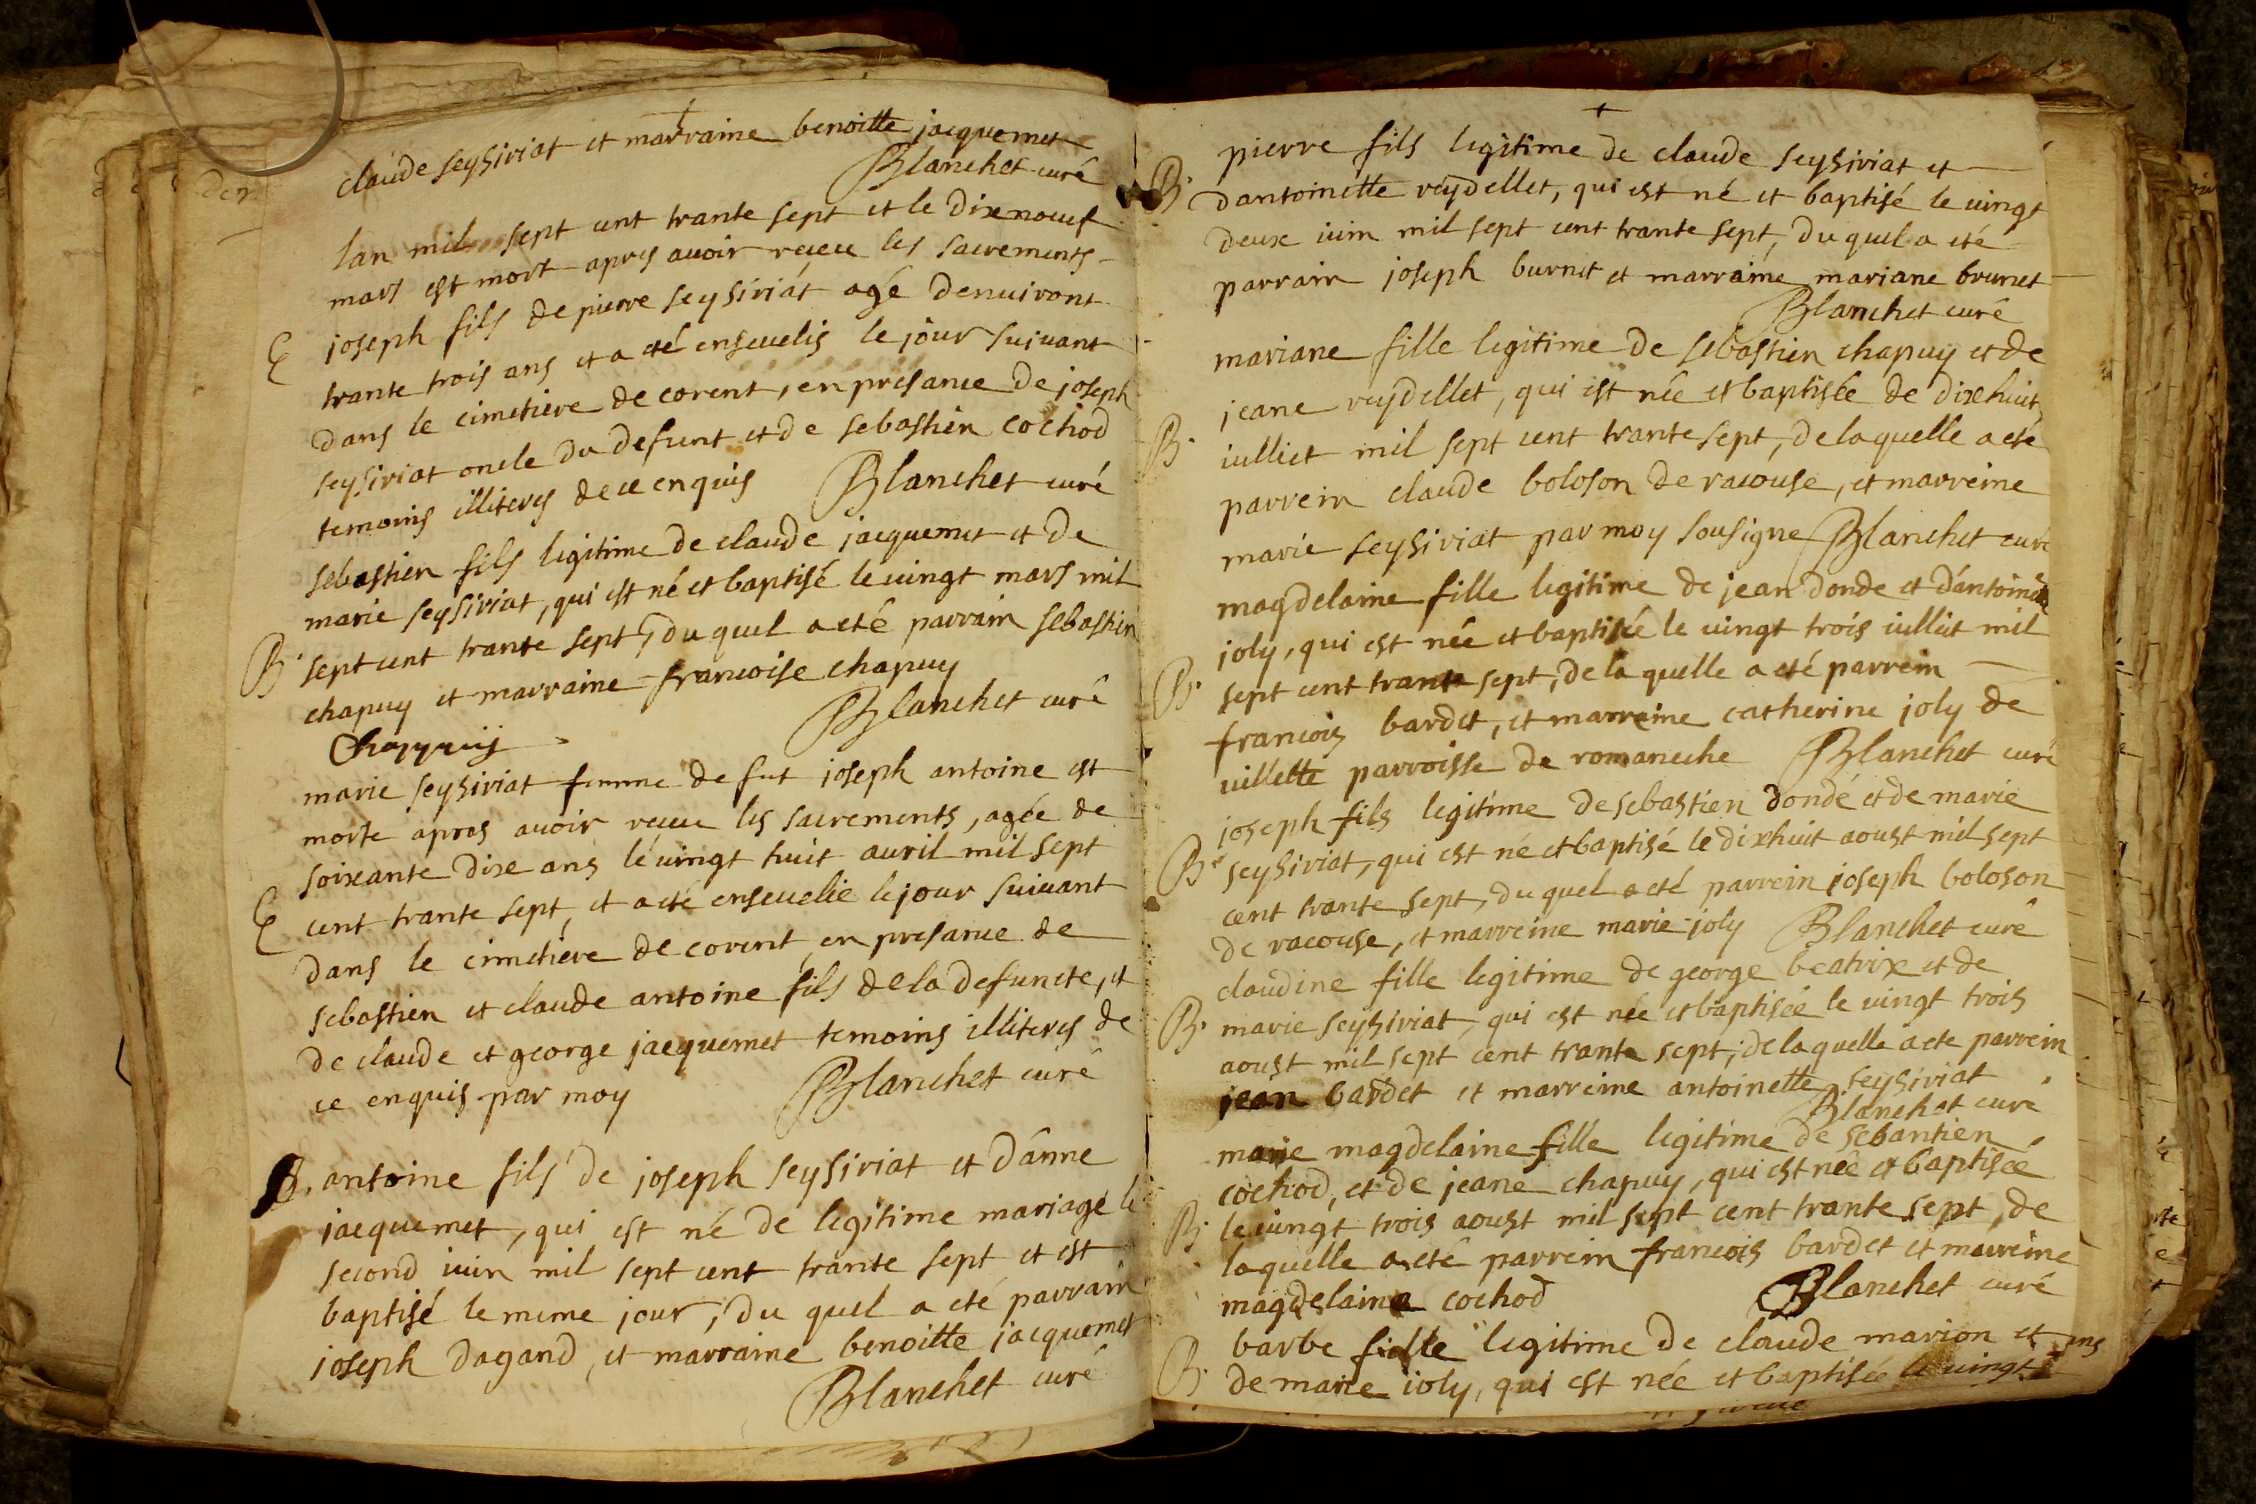 claude seysiriat et marraine benoitte jacquemet
Blanchet curé
lan mil sept cent trante sept et le dixneuf
mars est mort apres avoir receu les sacrements
E joseph fils de pierre seysiriat agé denuiront
trante trois ans et a eté enseuelis le jour suivant
dans le cimetiere de corent, en presance de joseph
seysiriat oncle du defunt et de sebastien cochod
temoins illiteres de ce enquis Blanchet curé
sebastien fils legitime de claude jacquemet et de
marie seysiriat, qui est né et baptisé le uingt mars mil
B. sept cent trante sept, du quel a eté parrain sebastien
chapuy et marraine francoise chapuy
Blanchet curé
Chappuij
marie seysiriat femme de fut joseph antoine est
morte apres auoir receu les sacrements, agée de
soixante dix ans lé uingt huit auril mil sept
E cent trante sept, et a eté enseuelie le jour suiuant
dans le cimetiere de corent, en presance de
sebastien et claude antoine fils de la defuncte, et
de claude et george jacquemet temoins illiteres de
ce enquis par moy Blanchet curé
B. antoine fils de joseph seysiriat et dánne
jacquemet, qui est né de legitime mariage le
second iuin mil sept cent trante sept et est
baptisé le meme jour, du quel a eté parrain
joseph dagand, et marraine benoitte jacquemet
Blanchet curé
pierre fils legitime de claude seysiriat et
B. dantoinette reydellet, qui est né et baptisé le uingt
deux iuin mil sept cent trante sept, du quel a eté
parrain joseph burnet et marraine mariane brunet
Blanchet curé
mariane fille legitime de sebastien chapuy et de
jeane reydellet, qui est née et baptisée de dixhuit
B. iulliet mil sept cent trante sept, de laquelle a eté
parrein claude boloson de racouse, et marreine
marie seysiriat par moy sousigne Blanchet curé
magdelaine fille legitime de jean donde et dántoinette
joly, qui est née et baptisée le uingt trois iulliet mil
B. sept cent trante sept, de la quelle a eté parrein
francois bardet, et marreine catherine joly de
uillette parroisse de romaneche Blanchet curé
joseph fils legitime de sebastien dondé et de marie
B. seysiriat, qui est né et baptisé le dixhuit aoust mil sept
cent trante sept, du quel a eté parrein joseph boloson
de racouse, et marreine marie joly Blanchet curé
claudine fille legitime de george beatrix et de
B. marie seysiriat, qui est née et baptisée le uingt trois
aoust mil sept cent trante sept, de laquelle a ete parrein
jean bardet et marreine antoinette seysiriat
Blanchet curé
marie magdelaine fille legitime de sebantien
cochod, et de jeane chapuy, qui est née et baptisée
B. le uingt trois aoust mil sept cent trante sept, de
laquelle a eté parrein francois bardet et marreine
magdelaine cochod Blanchet curé
barbe fielle legitime de claude marion et
B. de marie joly, qui est née et baptisée le uingt